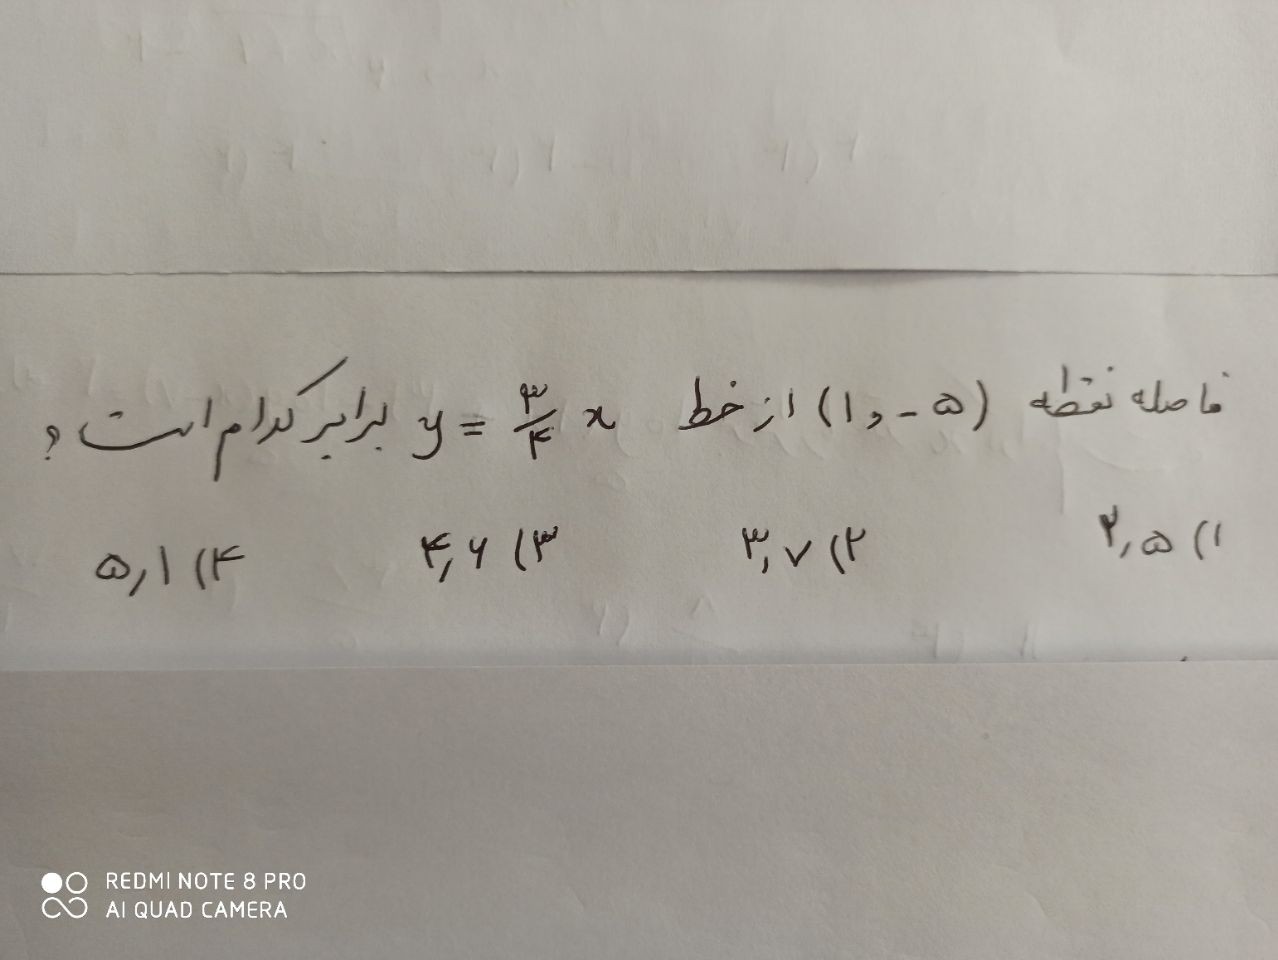 فاصله نقطه (۱ و -۵) از خط y = ۳/۴ x برابر کدام است؟
۱) ۲,۵ ۲) ۳,۷ ۳) ۴,۶ ۴) ۵,۱
REDMI NOTE 8 PRO
AI QUAD CAMERA